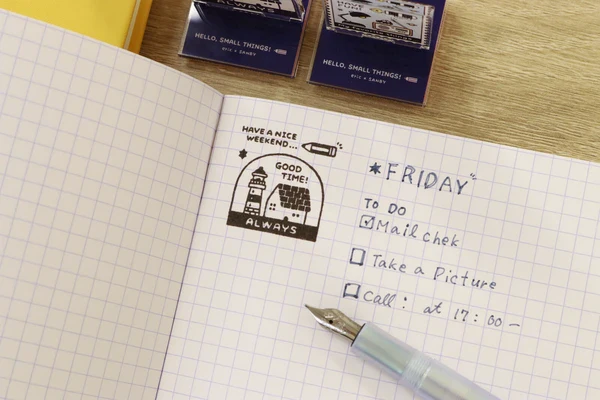 HELLO, SMALL THINGS!
eric × SANBY
HELLO, SMALL THINGS!
eric × SANBY
HAVE A NICE
WEEKEND...
GOOD
TIME!
ALWAYS
FRIDAY
TO DO
Mail chek
Take a Picture
Call: at 17:00-